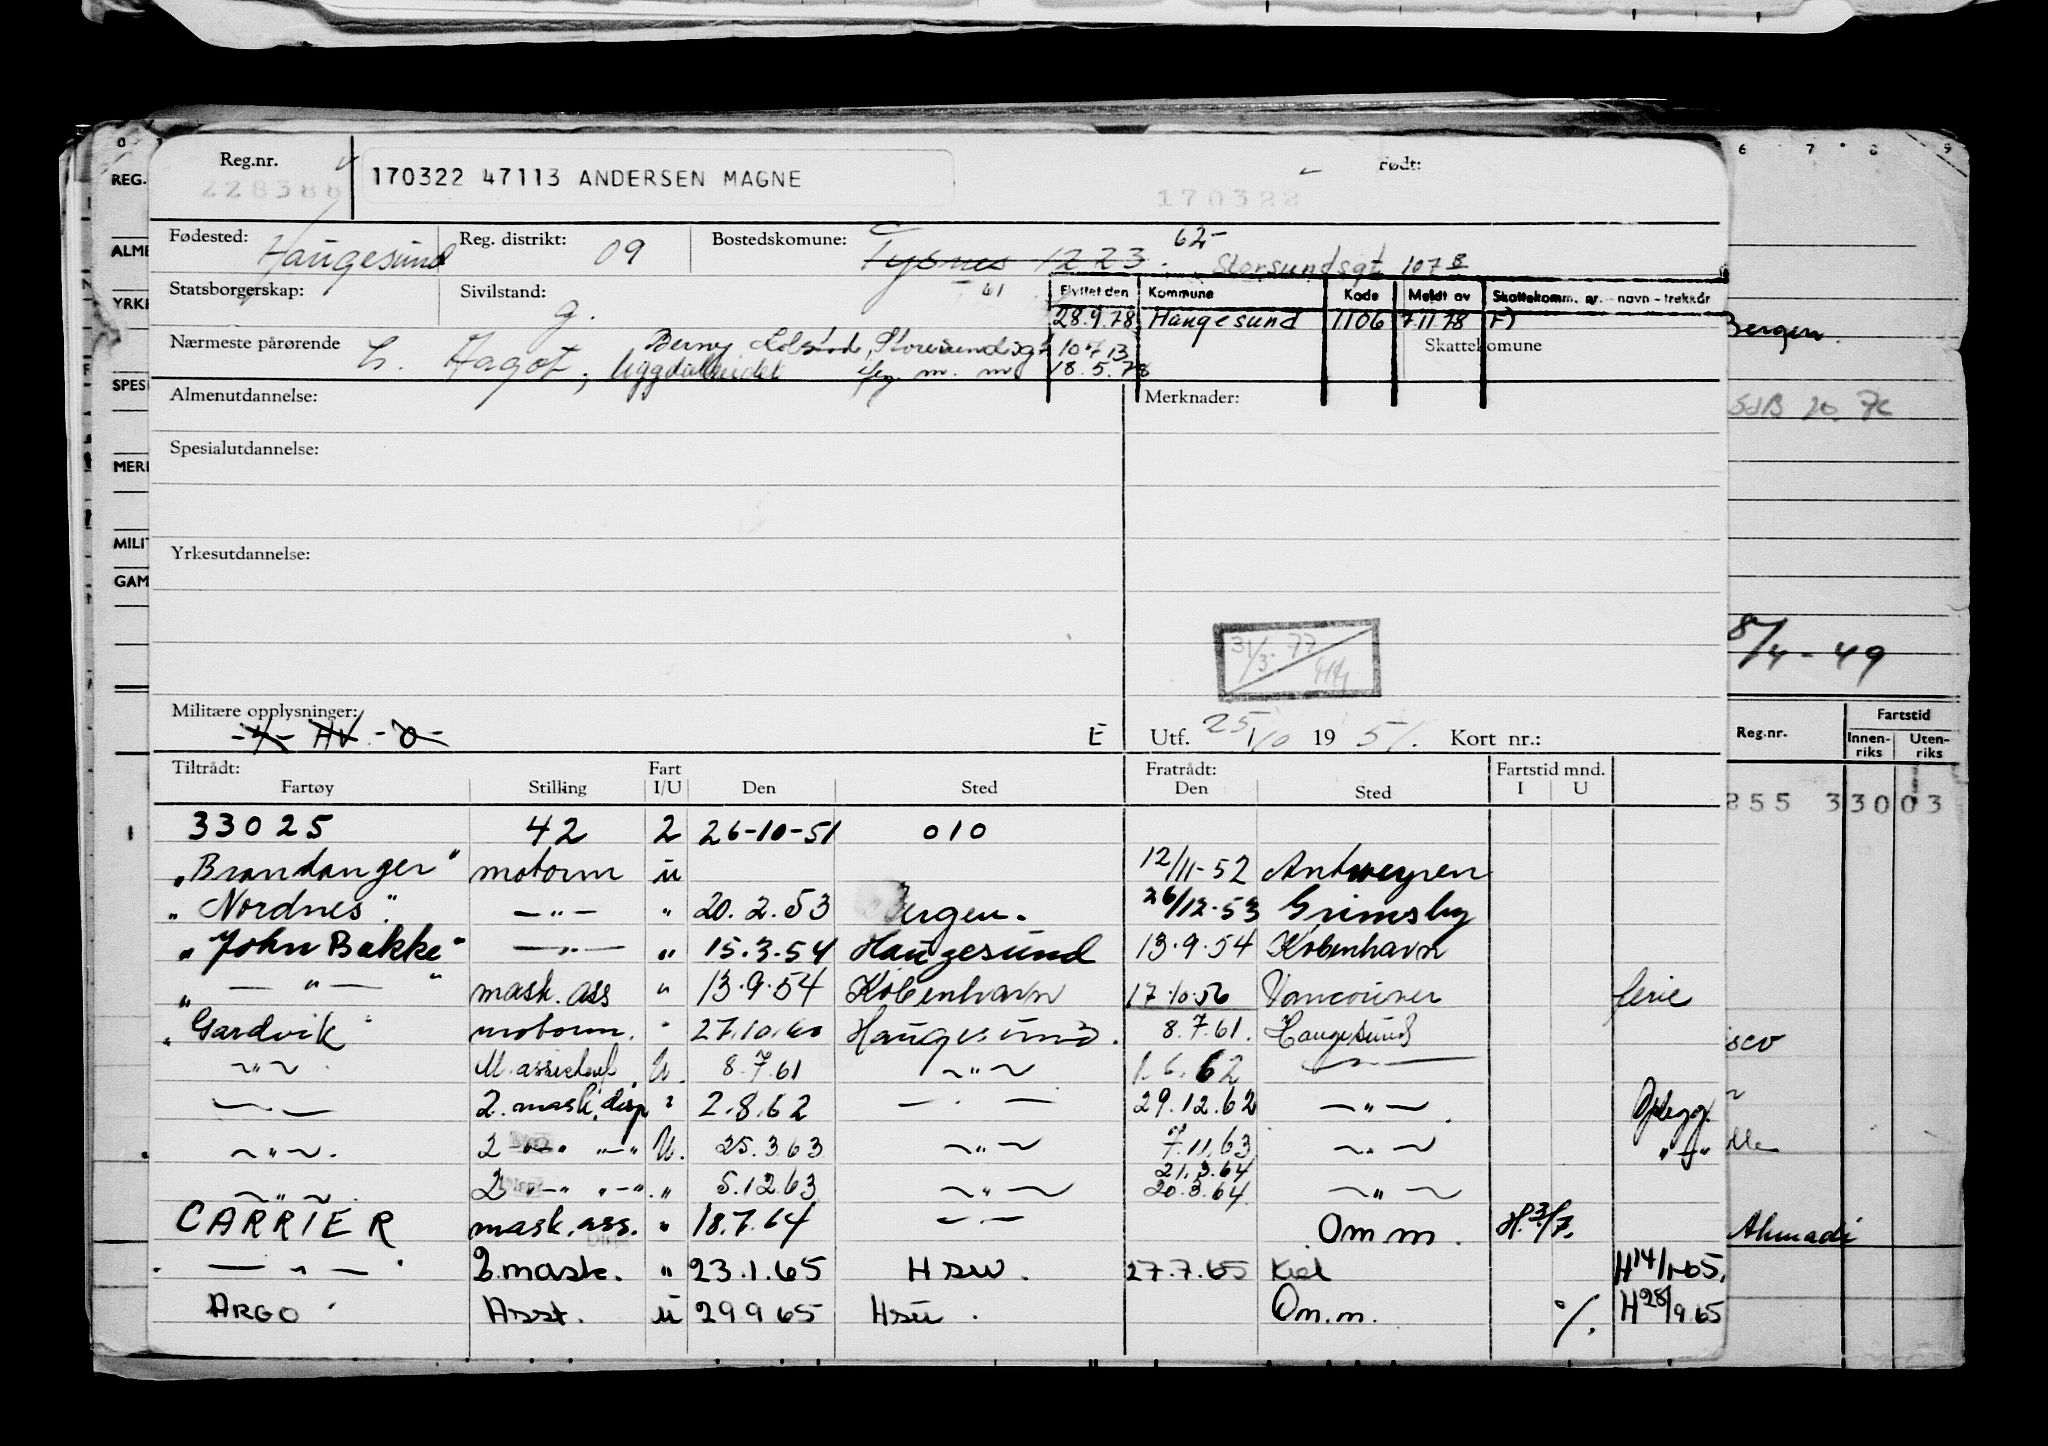 Reg.nr. Født:
228388 170322 47113 ANDERSEN MAGNE 170322
Fødested: Haugesund Reg. distrikt: 09 Bostedskomune: Tysnes 1223. 62- Storsundsgt 107 B
Statsborgerskap: Sivilstand: g. 61 Flyttet den Kommune Kode Meldt av Skattekomm. nr. - navn - trekkår
28.9.78 Haugesund 1106 7.11.78 F)
Nærmeste pårørende h. Hagot, Berny 107 B Skattekomune
18.5.78
Almenutdannelse: Merknader:
Spesialutdannelse:
Yrkesutdannelse:
31/3-77
Militære opplysninger: -4- HV -0- E Utf. 25/10 19 51. Kort nr.:
Tiltrådt: Fart Fratrådt: Fartstid mnd.
Fartøy Stilling I/U Den Sted Den Sted I U
33025 42 2 26-10-51 010
"Brandanger" motorm ü 12/11-52 Antwerpen
"Nordnes". —"— " 20.2.53 Bergen. 26/12-53 Grimsby
"John Bakke" —"— " 15.3.54 Haugesund 13.9.54 København
" — " — " mask. ass " 13.9.54 København 17.10.56 Vancouver ferie
"Gardvik" motorm. " 27.10.60 Haugesund. 8.7.61. Haugesund
~"~ M. assistent U. 8.7.61 ~"~ 1.6.62 —"—
—"— 2. mask. disp " 2.8.62 — " — 29.12.62 —"—. Opplegg.
~"~. 2 —"— "—" U. 25.3.63 ~"~ 7.11.63 ~"~ "—"
21.3.64
~"~. 2 "—" "—". " 5.12.63 ~"~ 20.3.64 ~"~
CARRIER mask. ass. " 18.7.64 —"— Om m. H.3/7.
— " — 2. mask. " 23.1.65 Hsu. 27.7.65 Kiel H14/1-65.
ARGO Asst. ü 29.9.65 Hsu. Om.m. %. H28/9.65
REG.
ALME
YRKE
SPESI
MERK
MILIT
GAM
6 7 8 9
Bergen.
8/4-49
Reg.nr. Fartstid
Innen-riks Uten-riks
255 3 30 03
sco
Ahmadi